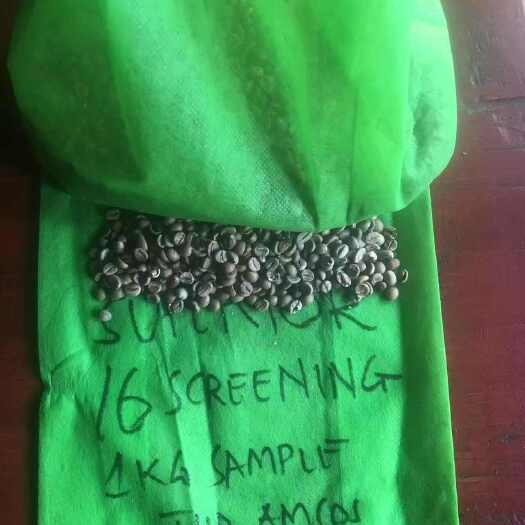 SUPERIOR
16 SCREENING
1KG SAMPLE
AMCOS